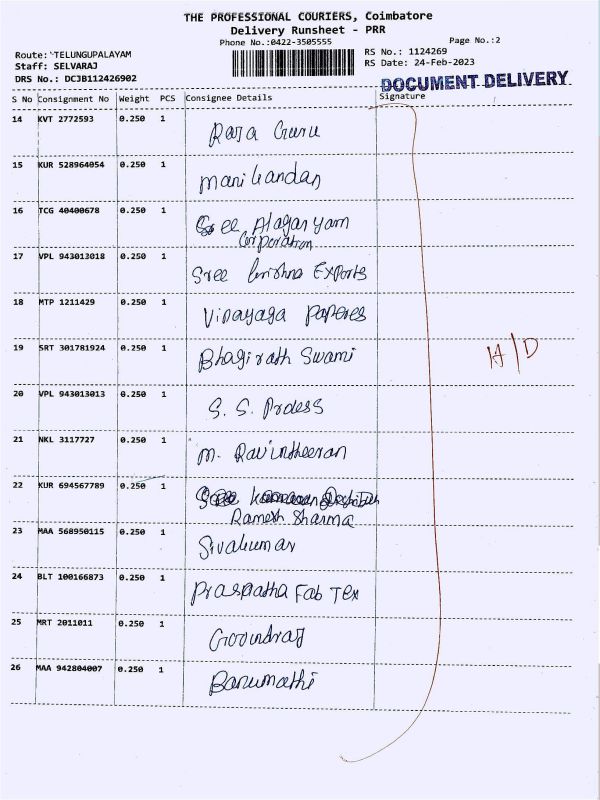 THE PROFESSIONAL COURIERS, Coimbatore
Delivery Runsheet - PRR
Phone No.:0422-3505555
Page No.:2
Route: TELUNGUPALAYAM
RS No.: 1124269
Staff: SELVARAJ
RS Date: 24-Feb-2023
DRS No.: DCJB112426902
DOCUMENT DELIVERY
S No Consignment No Weight PCS Consignee Details Signature
14 KVT 2772593 0.250 1 Raja Guru
15 KUR 528964054 0.250 1 Manikandan
16 TCG 40400678 0.250 1 Sree Alagar yarn
Corporation
17 VPL 943013018 0.250 1 Sree krishna Exports
18 MTP 1211429 0.250 1 Vinayaga Paperes
19 SRT 301781924 0.250 1 Bhagirath Swami
H/D
20 VPL 943013013 0.250 1 S. S. Prdess
21 NKL 3117727 0.250 1 M. Ravintheeran
22 KUR 694567789 0.250 1
Ramesh Sharma
23 MAA 568950115 0.250 1 Sivakumar
24 BLT 100166873 0.250 1 Praspatha Fab Tex
25 MRT 2011011 0.250 1 Govindraj
26 MAA 942804007 0.250 1 Banumathi